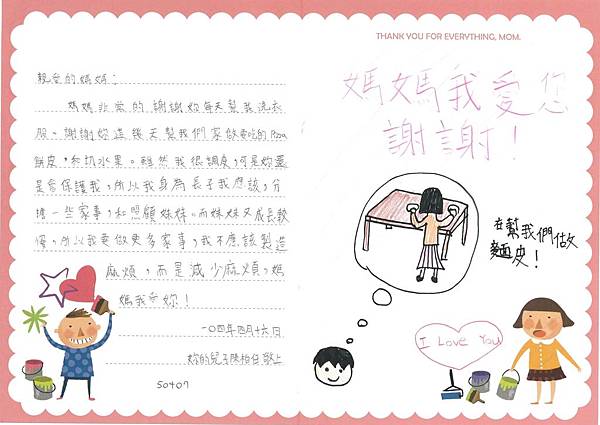 親愛的媽媽：
媽媽非常的謝謝妳每天幫我洗衣
服、謝謝妳這幾天幫我們家做要吃的Pizza
餅皮，和切水果。雖然我很調皮，可是妳還
是會保護我，所以我身為長子我應該，分
擔一些家事，和照顧妹妹。而妹妹又成長較
慢，所以我要做更多家事，我不應該製造
麻煩，而是減少麻煩，媽
媽我愛妳！
一〇四年四月十六日
妳的兒子陳柏任敬上
50407
THANK YOU FOR EVERYTHING, MOM.
媽媽我愛您
謝謝！
在幫我們做
麵皮！
I Love You